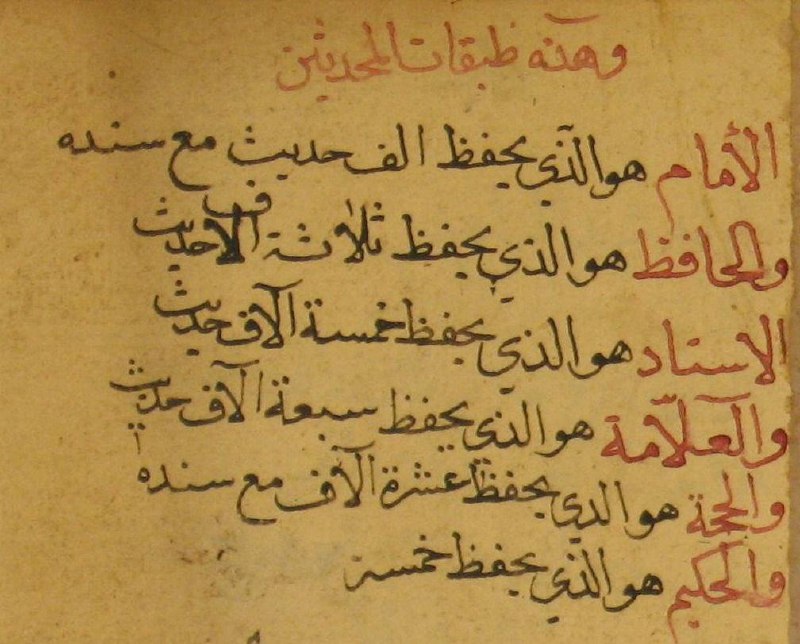 وهذه طبقات المحدثين
الأمام هو الذي يحفظ الف حديث مع سنده
والحافظ هو الذي يحفظ ثلاثة الاف حديث
الاستاد هو الذي يحفظ خمسة آلآف حديث
والعلّامة هو الذي يحفظ سبعة الآف حديث
والحجة هو الذي يحفظ عشرة الآف مع سنده
والحكيم هو الذي يحفظ خمسة